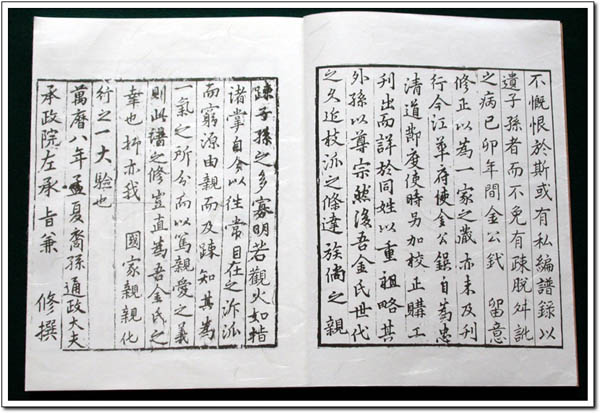 不慨恨於斯或有私編譜錄以
遺子孫者而不免有疎脫舛訛
之病已卯年間金公 留意
修正以為一家之藏亦未及刊
行今江華府使金公自為忠
清道節度使時另加校正購工
刊出而詳於同姓以重祖略其
外孫以尊宗然後吾金氏世代
之久近枝派之條達族之親
踈子孫之多寡明若觀火如指
諸掌自今以徃當自在之泝派
而窮源由親而及踈知其為
一氣之所分而以篤親愛之義
則此譜之修豈直為吾金氏之
幸也抑亦我 國家親親化
行之一大驗也
萬曆八年孟夏裔孫通政大夫
承政院左承旨兼 修撰